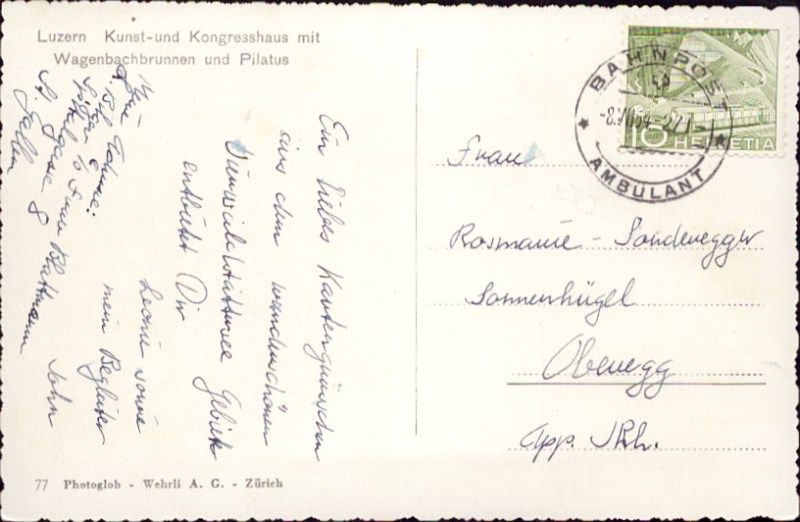 Luzern Kunst-und Kongresshaus mit
Wagenbachbrunnen und Pilatus
Ein liebes Kartengrüsschen
aus dem wunderschönen
Vierwaldstättersee Gebiete
entbietet Dir
Leonie sowie
mein Begleiter
John
Adresse:
b. Frau Blattmann
St. Gallen
BAHNPOST
AMBULANT
10 HELVETIA
Frau
Rosmarie - Sonderegger
Sonnenhügel
Oberegg
App. IRh.
77 Photoglob - Wehrli A. G. - Zürich